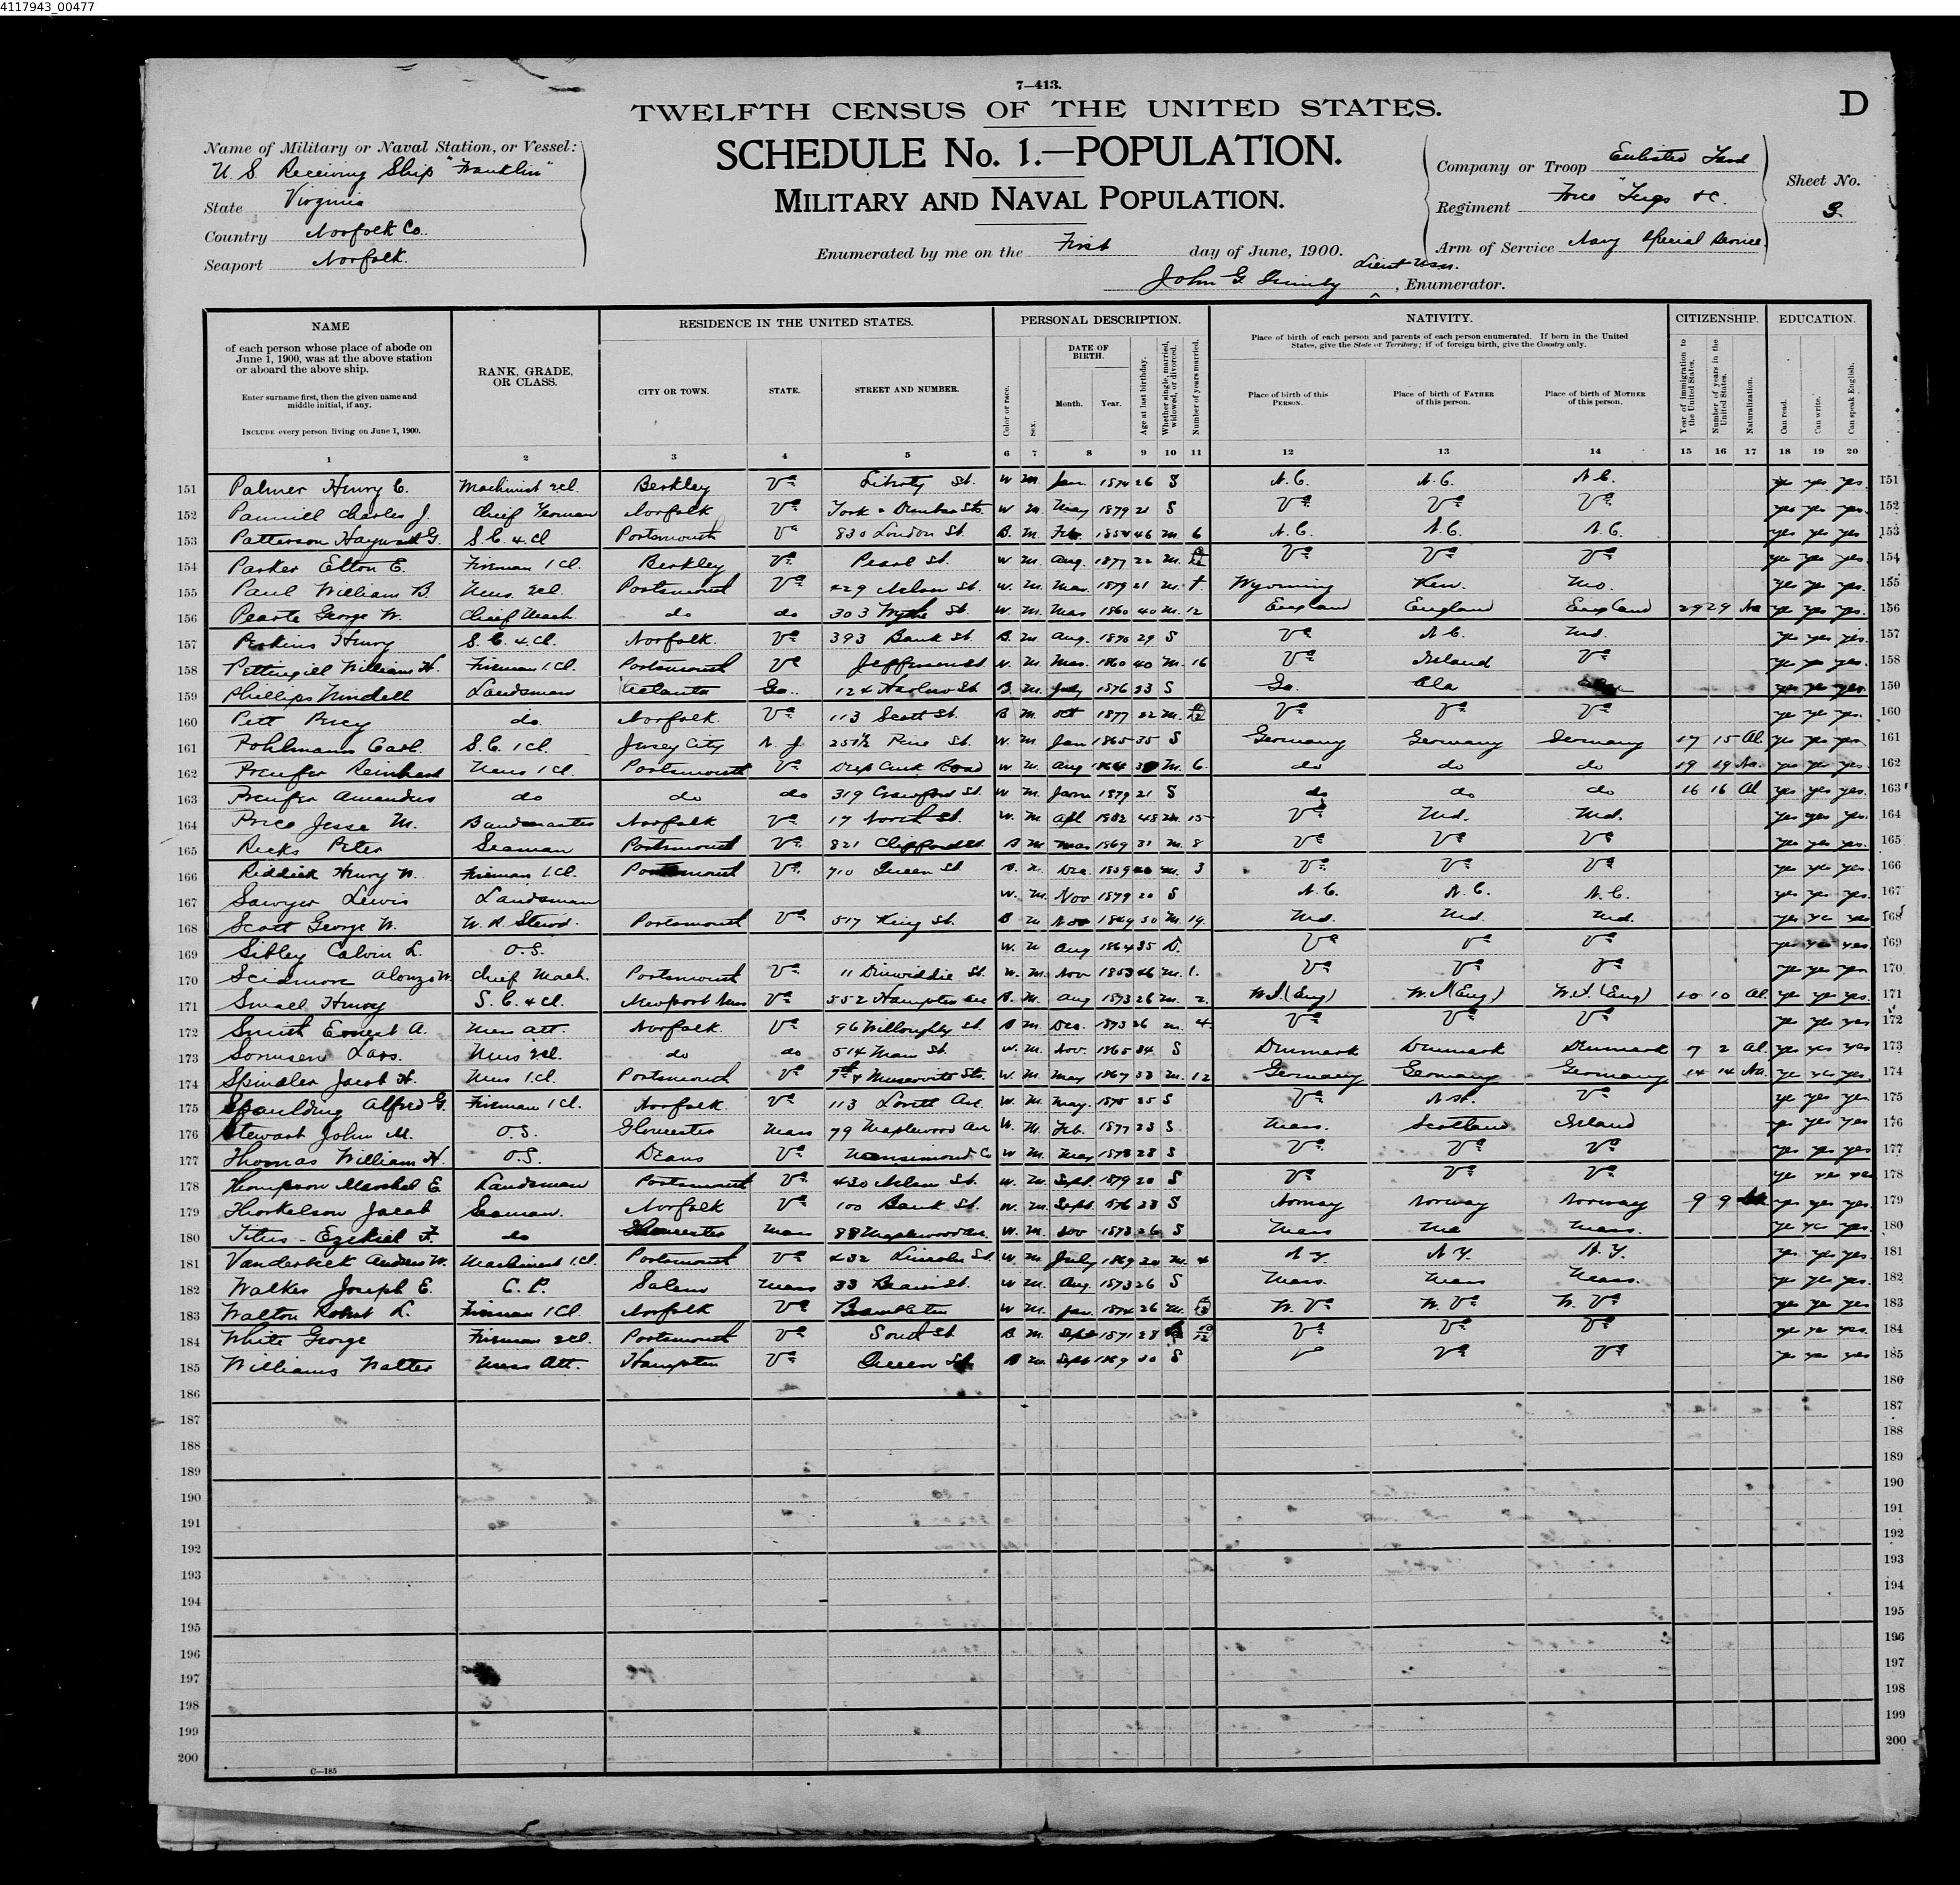 4117943_00477
7—413.
TWELFTH CENSUS OF THE UNITED STATES.
D
SCHEDULE No. 1.—POPULATION.
MILITARY AND NAVAL POPULATION.
Name of Military or Naval Station, or Vessel:
U. S Receiving Ship "Franklin"
State Virginia
Country Norfolk Co.
Seaport Norfolk.
Enumerated by me on the First day of June, 1900.
Lieut USN.
John G. , Enumerator.
Company or Troop Enlisted
Regiment Tugs &c.
Arm of Service Navy Special Service
Sheet No.
3
NAME
of each person whose place of abode on June 1, 1900, was at the above station or aboard the above ship.
Enter surname first, then the given name and middle initial, if any.
INCLUDE every person living on June 1, 1900.
RANK, GRADE, OR CLASS.
RESIDENCE IN THE UNITED STATES.
CITY OR TOWN.
STATE.
STREET AND NUMBER.
PERSONAL DESCRIPTION.
Color or race.
Sex.
DATE OF BIRTH.
Month.
Year.
Age at last birthday.
Whether single, married, widowed, or divorced.
Number of years married.
NATIVITY.
Place of birth of each person and parents of each person enumerated. If born in the United States, give the State or Territory; if of foreign birth, give the Country only.
Place of birth of this PERSON.
Place of birth of FATHER of this person.
Place of birth of MOTHER of this person.
CITIZENSHIP.
Year of immigration to the United States.
Number of years in the United States.
Naturalization.
EDUCATION.
Can read.
Can write.
Can speak English.
1 2 3 4 5 6 7 8 9 10 11 12 13 14 15 16 17 18 19 20
151 Palmer Henry C. Machinist 2cl. Berkley Va Liberty St. W M. Jan. 1874 26 S N.C. N.C. N.C. yes yes yes. 151
152 Pannill Charles J. Chief Yeoman Norfolk Va York & Dunbar Sts. W M. May 1879 21 S Va Va Va yes yes yes. 152
153 Patterson Hayward G. S.C. 4.Cl Portsmouth Va 830 London St. B. M. Feb. 1854 46 M. 6 N.C. N.C. N.C. yes yes yes 153
154 Parker Elton E. Fireman 1 Cl. Berkley Va Pearl St. W M. Aug. 1877 22 M. Va Va Va yes yes yes. 154
155 Paul William B. 2cl. Portsmouth Va 429 Nelson St. W. M. Mar. 1879 21 M. Wyoming Ken. Mo. yes yes yes. 155
156 Pearte George W. Chief Mach. do do 303 Wythe St. W. M. Mar 1860 40 M. 12 England England England 29 29 Na yes yes yes. 156
157 Perkins Henry S.C. 4.Cl. Norfolk. Va 393 Bank St. B. M. Aug. 1870 29 S Va N.C. Md. yes yes yes. 157
158 Pettingill William H. Fireman 1.Cl. Portsmouth Va Jefferson St. W. M. Mar. 1860 40 M. 16 Va Ireland Va yes yes yes. 158
159 Phillips Windell Landsman Atlanta Ga. 124 St B. M. July 1876 23 S Ga. Ala yes yes yes. 159
160 Pett Percy do. Norfolk. Va 113 Scott St. B M. Oct 1877 22 M. Va Va Va yes yes yes. 160
161 Pohlmann Carl. S.C. 1Cl. Jersey City N. J. 257½ Pine St. W. M. Jan 1865 35 S Germany Germany Germany 17 15 Al. yes yes yes. 161
162 Preufer Reinhard 1 Cl. Portsmouth Va Deep Creek Road W. M. Aug 1864 M. 6. do do do 19 19 Na. yes yes yes. 162
163 Preufer Amandus do do do 319 Crawford St. W M. Jan 1879 21 S do do do 16 16 Al yes yes yes. 163
164 Price Jesse M. Bandmaster Norfolk Va 17 North St. W. M. Apl 1852 48 M. 15 Va Md. Md. yes yes yes. 164
165 Ricks Peter Seaman Portsmouth Va. 821 Clifford St. B M Mar 1869 31 M. 8 Va Va Va yes yes yes. 165
166 Riddick Henry N. Fireman 1 Cl. Portsmouth Va. 710 Queen St B. M. Dec. 1859 40 M. 3 Va Va Va yes yes yes. 166
167 Sawyer Lewis Landsman W. M. Nov 1879 20 S N.C. N.C. N.C. yes yes yes. 167
168 Scott George W. W.R. Stewd. Portsmouth Va 517 King St. B M Nov 1849 50 M. 19. Md. Md. Md. yes yes yes 168
169 Sibley Calvin L. O.S. W. M Aug 1864 35 D. Va Va Va yes yes yes 169
170 Scidmore Alonzo W. Chief Mach. Portsmouth Va 11 Dinwiddie St. W. M. Nov 1853 46 M. 1. Va Va Va yes yes yes 170
171 Small Henry S.C. 4 Cl. Newport News Va 552 Hampton Ave B. M. Aug 1873 26 M. 2. W.I. (Eng) W.I (Eng) W.I. (Eng) 10 10 Al. yes yes yes. 171
172 Smith Ernest A. Mess Att. Norfolk. Va 96 Willoughby St. B M. Dec. 1873 26 M. 4 Va Va Va yes yes yes 172
173 Sorensen Lars. 2cl. do do 514 Main St. W. M. Nov. 1865 34 S Denmark Denmark Denmark 7 2 Al. yes yes yes 173
174 Spindler Jacob H. 1.Cl. Portsmouth Va W. M. May 1867 33 M. 12 Germany Germany Germany 14 14 Na. yes yes yes 174
175 Spaulding Alfred G. Fireman 1 Cl. Norfolk. Va 113 Lovitt Ave. W. M. May. 1875 25 S Va Va yes yes yes. 175
176 Stewart John M. O.S. Gloucester Mass 79 Maplewood Ave W. M. Feb. 1877 23 S Mass. Scotland Ireland yes yes yes 176
177 Thomas William H. O.S. Deans Va Nansemond Co W M. May 28 S Va Va Va yes yes yes 177
178 Thompson Marshal E. Landsman Portsmouth Va. 430 Nelson St. W. M. Sept. 1879 20 S Va Va Va yes yes yes 178
179 Thorkelson Jacob Seaman. Norfolk Va 100 Bank St. W. M. Sept. 1876 23 S Norway Norway Norway 9 9 yes yes yes 179
180 Titus - Ezekiel F. do Gloucester Mass 88 Maplewood Ave. W. M. Nov 1873 26 S Mass Me Mass. yes yes yes. 180
181 Vanderbelt Andrew W. Machinist 1.Cl. Portsmouth Va 432 Lincoln St. W. M. July 1869 M. 4 N.Y. N.Y. N.Y. yes yes yes. 181
182 Walker Joseph E. C.P. Salem Mass 33 St. W M. Aug. 1873 26 S Mass. Mass Mass. yes yes yes. 182
183 Walton Robert L. Fireman 1 Cl. Norfolk Va Brambleton W M. Jan. 1874 26 M. W. Va W. Va W. Va yes yes yes 183
184 White George Fireman 2cl. Portsmouth Va South St. B M. Sept 1871 28 10/12 Va Va Va yes yes yes. 184
185 Williams Walter Mess Att. Hampton Va Queen St. B M. Sept 1869 30 S Va Va Va yes yes yes 185
186 186
187 187
188 188
189 189
190 190
191 191
192 192
193 193
194 194
195 195
196 196
197 197
198 198
199 199
200 200
C—185